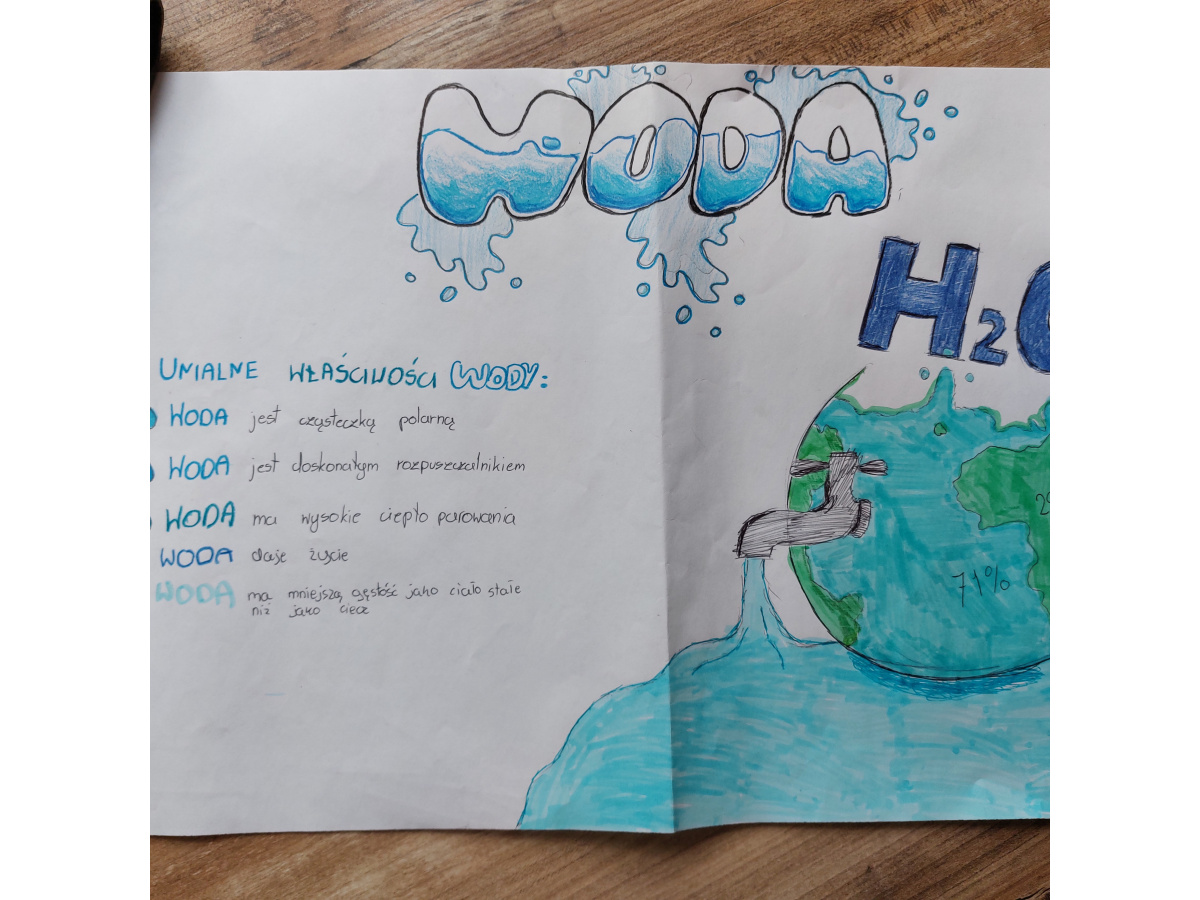 WODA
H2O
UNIALNE WŁAŚCIWOŚCI WODY:
WODA jest cząsteczką polarną
WODA jest doskonałym rozpuszczalnikiem
WODA ma wysokie ciepło parowania
WODA daje życie
WODA ma mniejszą gęstość jako ciało stałe
niż jako ciecz
71%